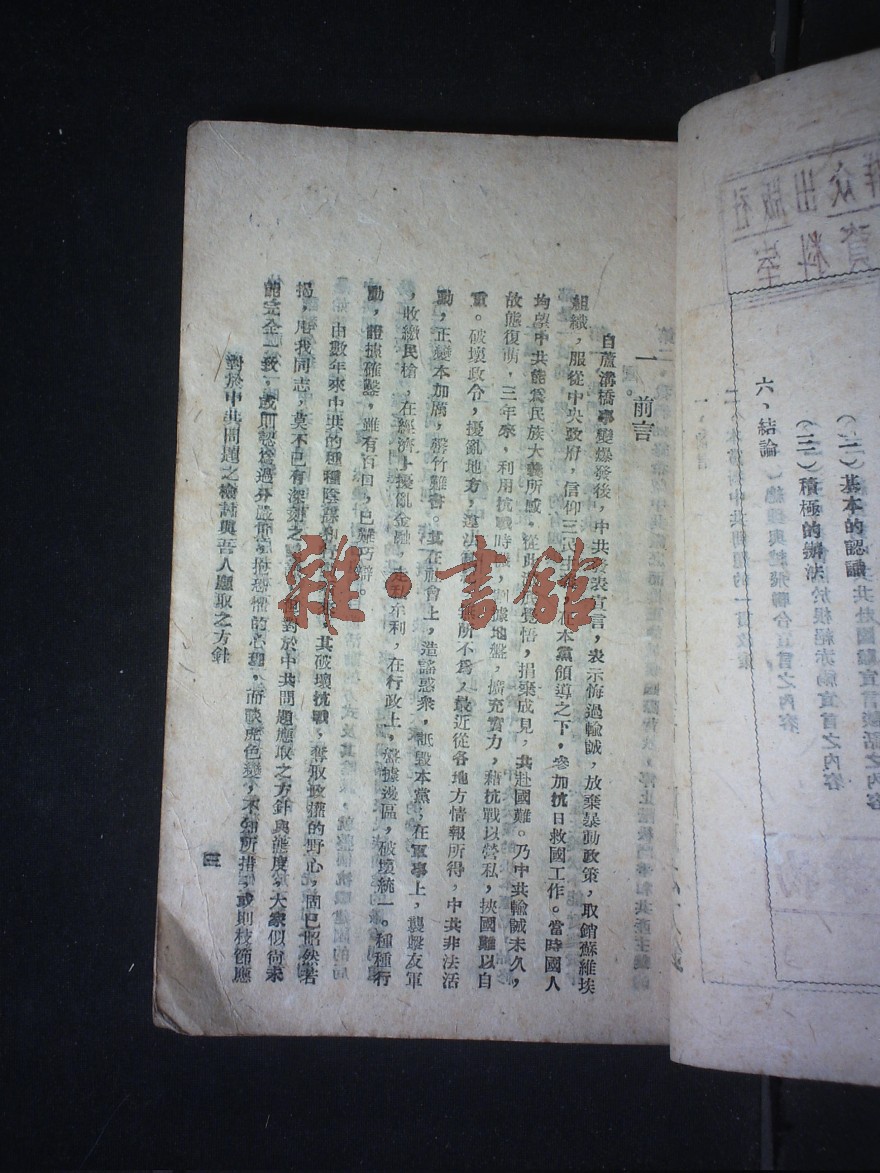 群众出版社
資料室
(二)基本的認識
(三)積極的辦法
六、結論
一 前言
自蘆溝橋事變爆發後,中共發表宣言,表示悔過輸誠,放棄暴動政策,取銷蘇維埃
組織,服從中央政府,信仰三民主義,在本黨領導之下,參加抗日救國工作。當時國人
均望中共能爲民族大義所感。從此澈底覺悟,捐棄成見,共赴國難。乃中共輸誠未久,
故態復萌,三年來,利用抗戰時機,割據地盤,擴充實力,藉抗戰以營私,挾國難以自
重。破壞政令,擾亂地方,違法 所不爲,最近從各地方情報所得,中共非法活
動,正變本加厲,罄竹難書。其在社會上,造謠惑衆,詆毀本黨,在軍事上,襲擊友軍
,收繳民槍,在經濟上擾亂金融,走私牟利,在行政上,盤據邊區,破壞統一。種種行
動,證據確鑿,雖有百口,已難巧辯。
由數年來中共的種種陰謀和 其破壞抗戰,奪取政權的野心,固已昭然若
揭,凡我同志,莫不已有深刻之 對於中共問題應取之方針與態度,大家似尙未
能完全一致,或則認爲過分嚴重,抱恐懼的心理。而談虎色變,不知所措,或則枝節應
對於中共問題之檢討與吾人應取之方針
三
雜·書館